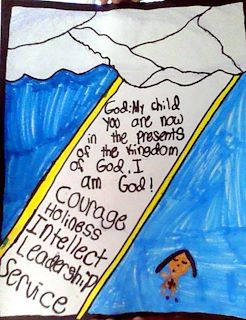 God: My child
you are now
in the presents
of the Kingdom
of God. I
am God!
Courage
Holiness
Intellect
Leadership
Service